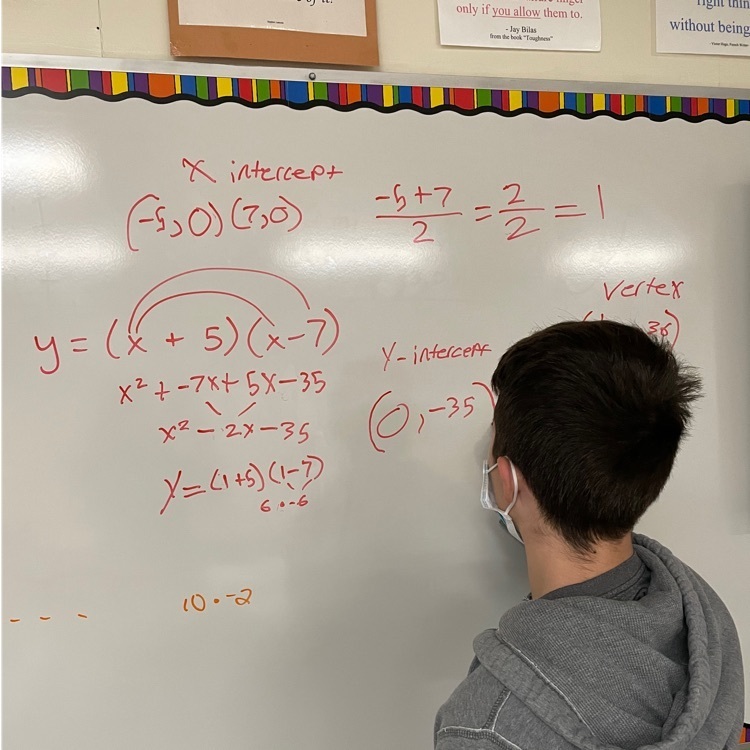 only if you allow them to.
- Jay Bilas
from the book "Toughness"
right thin
without being
X intercept
(-5,0)(7,0)
-5+7/2 = 2/2 = 1
Vertex
36)
y = (x + 5)(x-7)
x² + -7x+ 5x-35
x² - 2x-35
y=(1+5)(1-7)
6 · -6
Y-intercept
(0, -35)
10 · -2